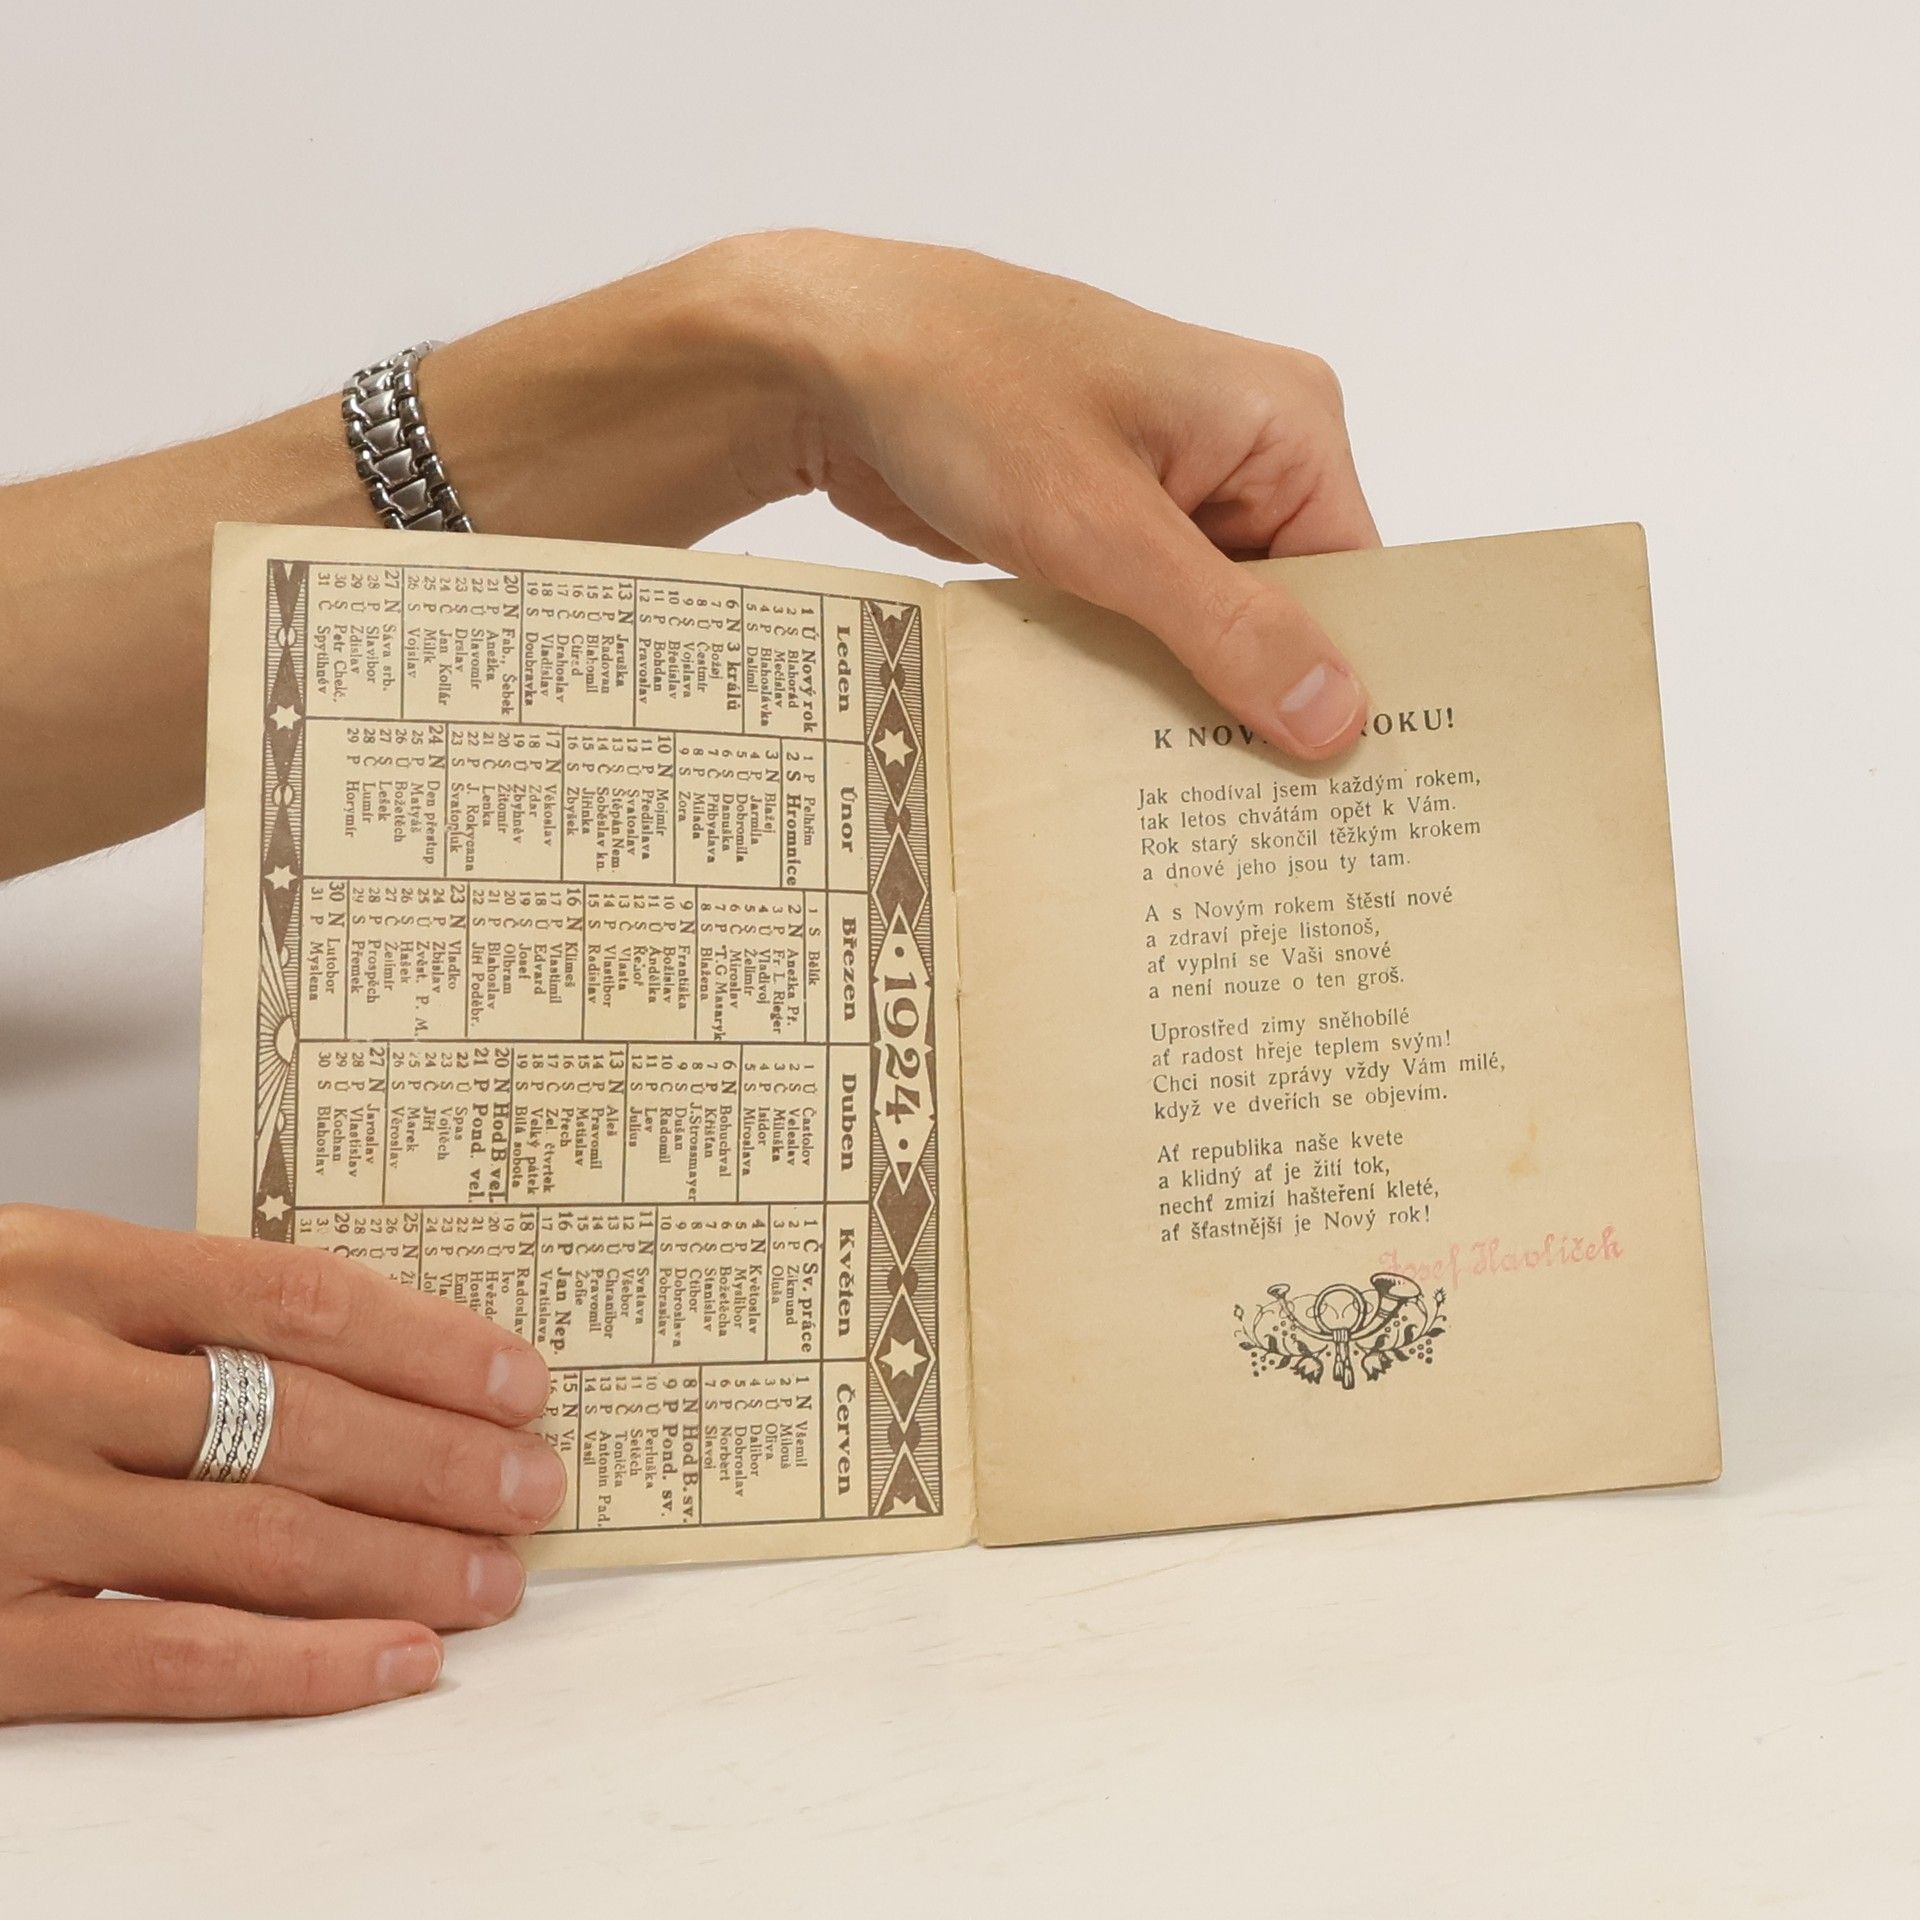 1924
Leden
1 Ú Nový rok
2 S Blahorád
3 Č Mečislav
4 P Blahoslávka
5 S Dalimil
6 N 3 králů
7 P Božej
8 Ú Čestmír
9 S Vojslava
10 Č Břetislav
11 P Bohdan
12 S Pravoslav
13 N Jaruška
14 P Radovan
15 Ú Blahomil
16 S Ctirad
17 Č Drahoslav
18 P Vladislav
19 S Doubravka
20 N Fab., Šebek
21 P Anežka
22 Ú Slavomír
23 S Drslav
24 Č Jan Kollár
25 P Milík
26 S Vojslav
27 N Sáva srb.
28 P Slavibor
29 Ú Zdislav
30 S Petr Chelč.
31 Č Spytihněv
Únor
1 P Pelhřim
2 S Hromnice
3 N Blažej
4 P Jarmila
5 Ú Dobromila
6 S Danuška
7 Č Přibyslava
8 P Milada
9 S Zora
10 N Mojmír
11 P Předislava
12 Ú Svatoslav
13 S Štěpán Nem.
14 Č Soběslav kn.
15 P Jiřinka
16 S Zbyšek
17 N Věkoslav
18 P Zdar
19 Ú Zbyhněv
20 S Žitomír
21 Č Lenka
22 P J. Rokycana
23 S Svatopluk
24 N Den přestup.
25 P Matyáš
26 Ú Božetěch
27 S Lešek
28 Č Lumír
29 P Horymír
Březen
1 S Bělík
2 N Anežka Př.
3 P Fr L. Rieger
4 Ú Vladivoj
5 S Želimír
6 Č Miroslav
7 P T.G Masaryk
8 S Blažena
9 N Františka
10 P Božislav
11 Ú Andělka
12 S Řehoř
13 Č Vlasta
14 P Vlastibor
15 S Radislav
16 N Klimeš
17 P Vlastimil
18 Ú Edvard
19 S Josef
20 Č Olbram
21 P Blahoslav
22 S Jiří Poděbr.
23 N Vladko
24 P Zbislav
25 Ú Zvěst. P. M.
26 S Hašek
27 Č Želimír
28 P Prospěch
29 S Přemek
30 N Lutobor
31 P Myslena
Duben
1 Ú Častolov
2 S Veleslav
3 Č Miluška
4 P Isidor
5 S Miroslava
6 N Bohuchval
7 P Křišťan
8 Ú J.Strossmayer
9 S Dušan
10 Č Radomil
11 P Lev
12 S Julius
13 N Aleš
14 P Pravomil
15 Ú Mstislav
16 S Přech
17 Č Zel. čtvrtek
18 P Velký pátek
19 S Bílá sobota
20 N Hod B vel.
21 P Pond. vel.
22 Ú Spas
23 S Vojtěch
24 Č Jiří
25 P Marek
26 S Věroslav
27 N Jaroslav
28 P Vlastislav
29 Ú Kochan
30 S Blahoslav
Květen
1 Č Sv. práce
2 P Zikmund
3 S Oluša
4 N Květoslav
5 P Myslibor
6 Ú Božetěcha
7 S Stanislav
8 Č Ctibor
9 P Dobroslava
10 S Pobraslav
11 N Svatava
12 P Všebor
13 Ú Chranibor
14 S Pravomil
15 Č Žofie
16 P Jan Nep.
17 S Vratislava
18 N Radoslav
19 P Ivo
20 Ú
21 S
22 Č Emil
23 P
24 S
25 N
26 P
27 Ú
28 S
29 Č
31
Červen
1 N Všemil
2 P Milouš
3 Ú Oliva
4 S Dalibor
5 Č Dobroslav
6 P Norbert
7 S Slavoj
8 N Hod B. sv.
9 P Pond. sv.
10 Ú Perluška
11 S Setěch
12 Č Tonička
13 P Antonín Pad.
14 S Vasil
15 N Vít
16 P
K NOV ROKU!
Jak chodíval jsem každým rokem,
tak letos chvátám opět k Vám.
Rok starý skončil těžkým krokem
a dnové jeho jsou ty tam.
A s Novým rokem štěstí nové
a zdraví přeje listonoš,
ať vyplní se Vaši snové
a není nouze o ten groš.
Uprostřed zimy sněhobílé
ať radost hřeje teplem svým!
Chci nosit zprávy vždy Vám milé,
když ve dveřích se objevím.
Ať republika naše kvete
a klidný ať je žití tok,
nechť zmizí hašteření kleté,
ať šťastnější je Nový rok!
Josef Havlíček